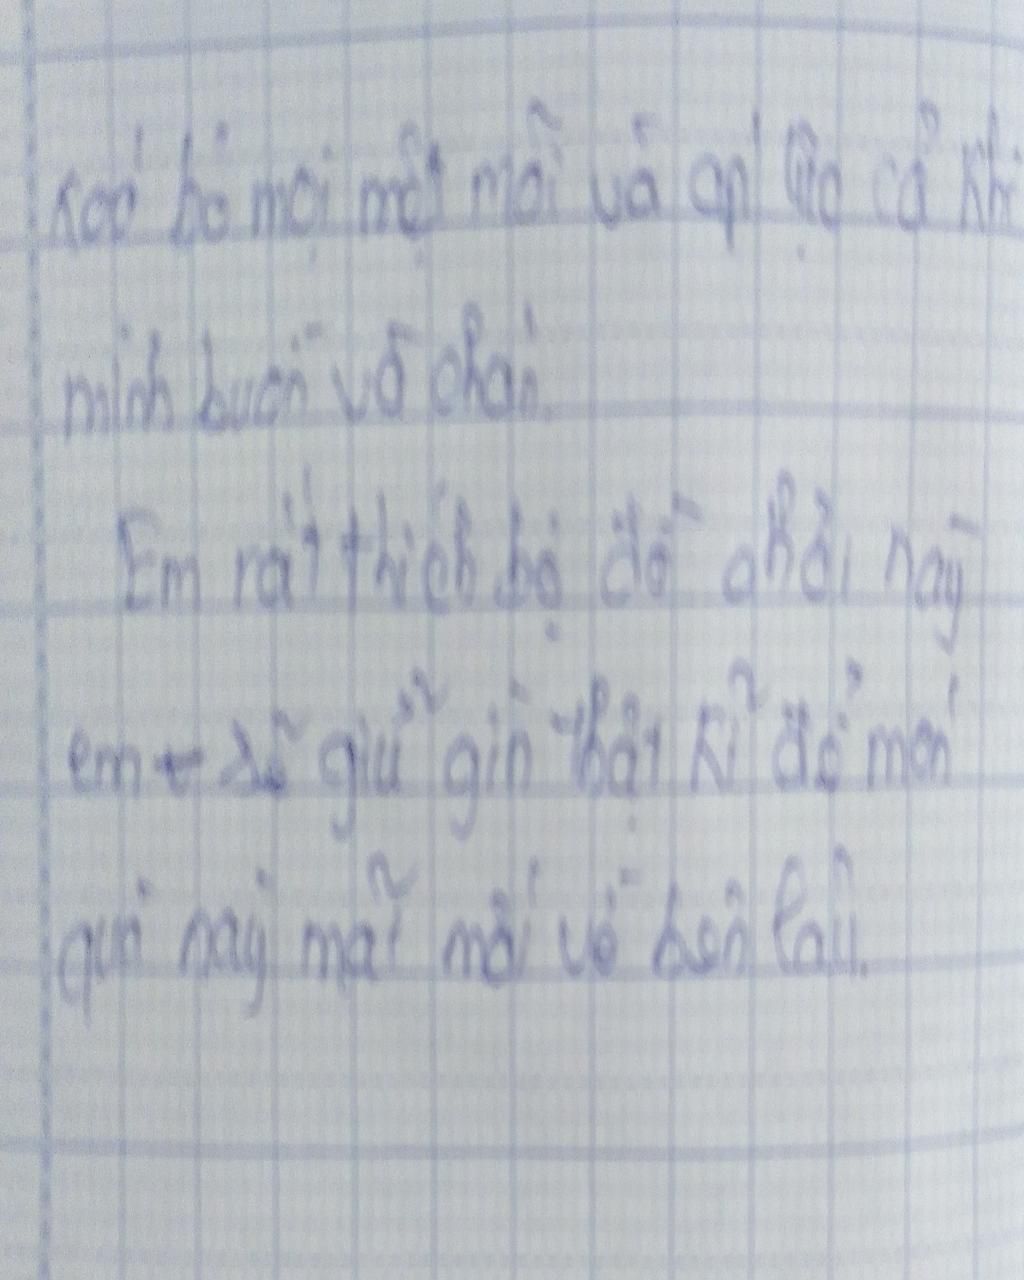 xoá bỏ mọi mệt mỏi và áp lực cả khi
mình buồn và chán.
Em rất thích bộ đồ chơi này
em sẽ giữ gìn thật kĩ để món
quà này mãi mới và bền lâu.